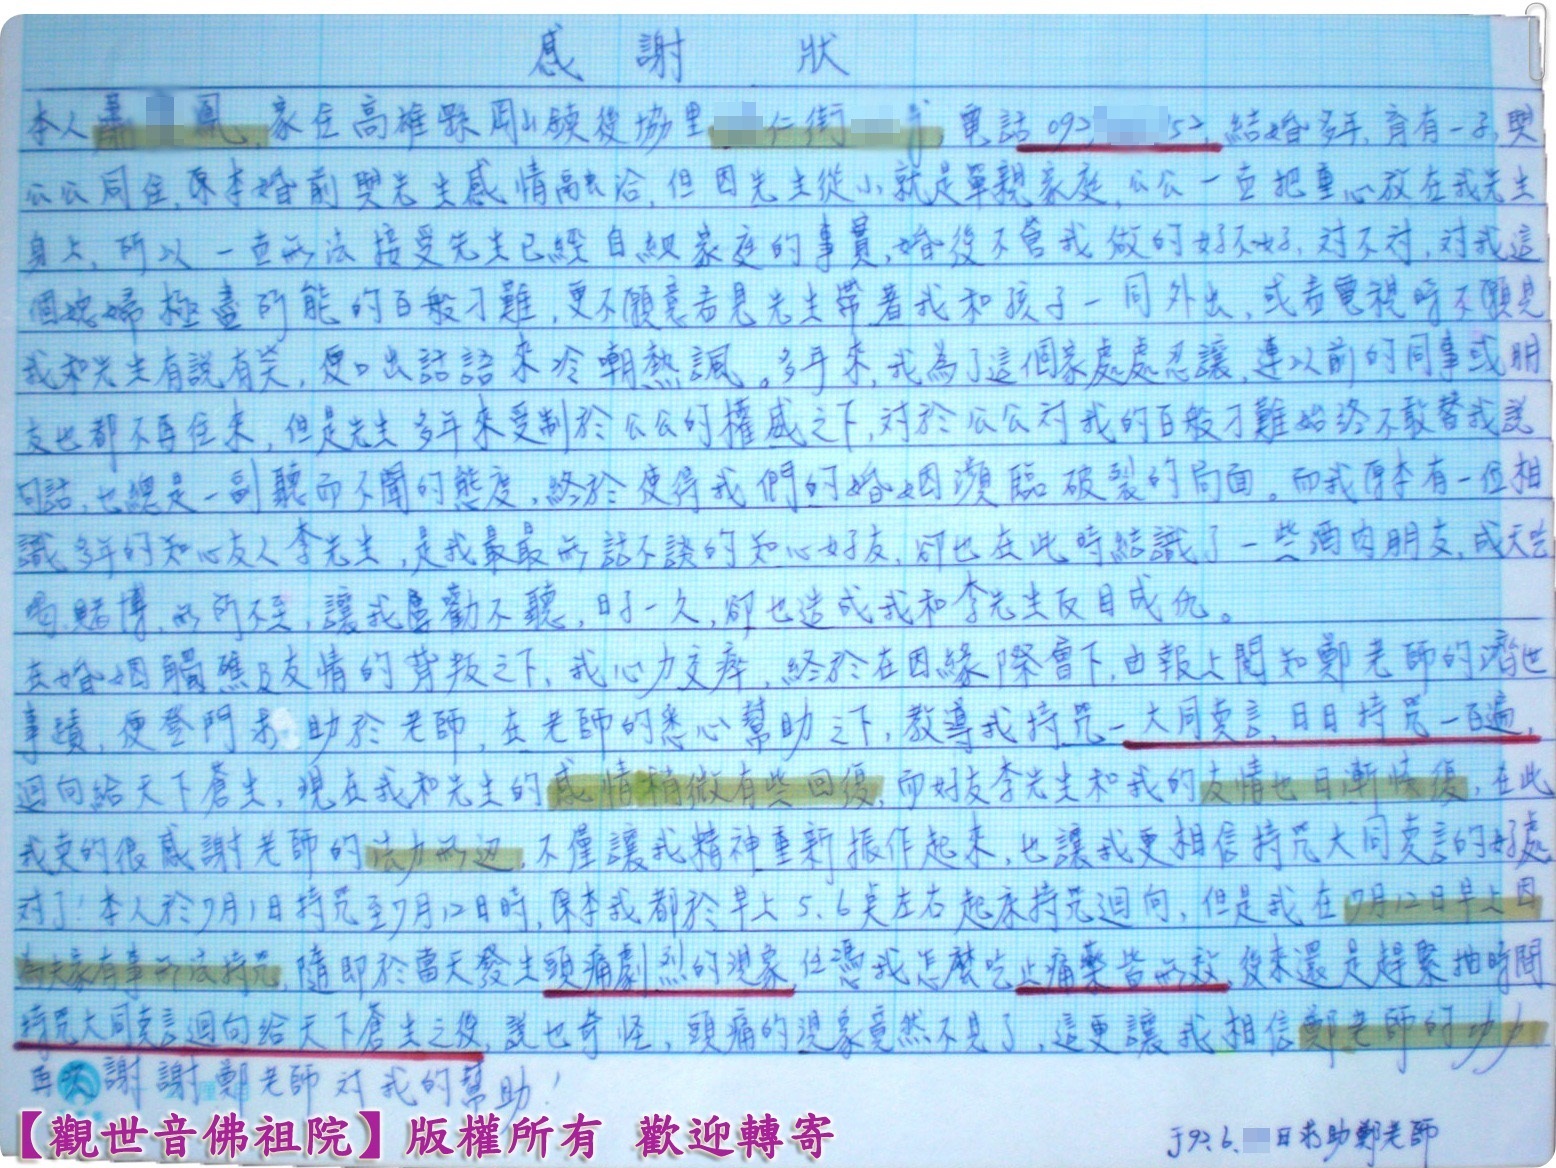 感謝狀
本人蕭 鳳,家住高雄縣岡山鎮後協里 仁街 電話092 52,結婚多年,育有一子,與
公公同住,原本婚前與先生感情融洽,但因先生從小就是單親家庭,公公一直把重心放在我先生
身上,所以一直無法接受先生已經自組家庭的事實,婚後不管我做的好不好,對不對,對我這
個媳婦極盡所能的百般刁難,更不願意看見先生帶著我和孩子一同外出,或看電視時不願見
我和先生有說有笑,便口出話語來冷嘲熱諷。多年來,我為了這個家處處忍讓,連以前的同事或朋
友也都不再往來,但是先生多年來受制於公公的權威之下,對於公公對我的百般刁難始終不敢替我說
句話,也總是一副聽而不聞的態度,終於使得我們的婚姻瀕臨破裂的局面。而我原本有一位相
識多年的知心友人李先生,是我最最無話不談的知心好友,卻也在此時結識了一些酒肉朋友,成天吃
喝.賭博,無所不至,讓我屢勸不聽,日子一久,卻也造成我和李先生反目成仇。
在婚姻觸礁及友情的背叛之下,我心力交瘁,終於在因緣際會下,由報上閱知鄭老師的濟世
事蹟,便登門求助於老師,在老師的悉心幫助之下,教導我持咒一大同真言,日日持咒一百遍,
迴向給天下蒼生,現在我和先生的感情稍微有些回復,而好友李先生和我的友情也日漸恢復,在此
我真的很感謝老師的法力無邊,不僅讓我精神重新振作起來,也讓我更相信持咒大同真言的好處
對了!本人於7月1日持咒至7月12日時,原本我都於早上5.6點左右起床持咒迴向,但是我在7月12日早上因
為夫家有事無法持咒,隨即於當天發生頭痛劇烈的現象,任憑我怎麼吃止痛藥皆無效,後來還是趕緊抽時間
持咒大同真言迴向給天下蒼生之後,說也奇怪,頭痛的現象竟然不見了,這更讓我相信鄭老師的功力
再次謝謝鄭老師對我的幫助!
92.6. 日求助鄭老師
【觀世音佛祖院】版權所有 歡迎轉寄